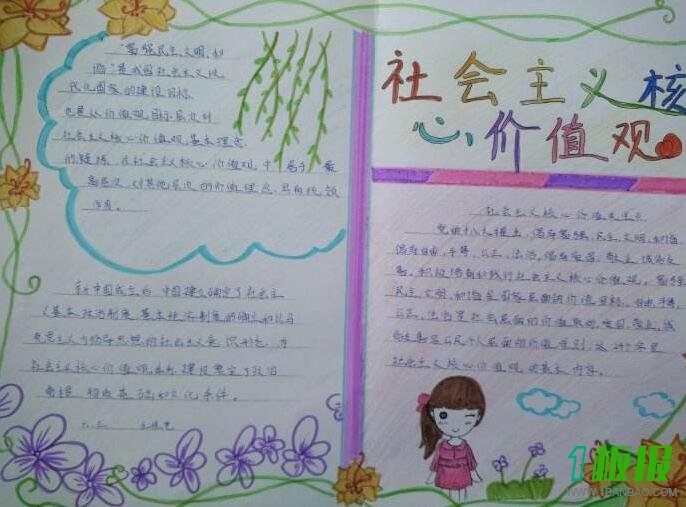 社会主义核
心价值观
"富强民主、文明、和
谐"是我国社会主义现
代化国家的建设目标,
也是从价值观目标层次对
社会主义核心价值观基本理念
的凝练,在社会主义核心价值观中居于最
高层次,对其他层次的价值理念具有统领
作用。
新中国成立后,中国建立确定了社会主
义基本政治制度、基本经济制度的确立和以马
克思主义为指导思想的社会主义意识形态,为
社会主义核心价值观体系建设奠定了政治
前提、物质基础和文化条件。
社会主义核心价值观
党的十八大提出,倡导富强、民主、文明、和谐,
倡导自由、平等、公正、法治,倡导爱国、敬业、诚信、友
善,积极培育和践行社会主义核心价值观。富强、
民主、文明、和谐是国家层面的价值目标,自由、平等、
公正、法治是社会层面的价值取向,爱国、敬业、诚
信、友善是公民个人层面的价值准则,这24个字是
社会主义核心价值观的基本内容。
1板报
WWW.1BANBAO.COM